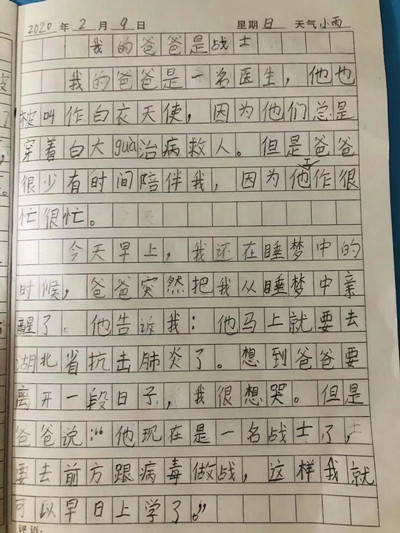 2020年2月9日 星期日 天气小雨
我的爸爸是战士
我的爸爸是一名医生，他也
被叫作白衣天使，因为他们总是
穿着白大guà治病救人。但是爸爸
很少有时间陪伴我，因为他工作很
忙很忙。
今天早上，我还在睡梦中的
时候，爸爸突然把我从睡梦中亲
醒了。他告诉我：他马上就要去
湖北省抗击肺炎了。想到爸爸要
离开一段日子，我很想哭。但是
爸爸说：“他现在是一名战士了，
要去前方跟病毒做战，这样我就
可以早日上学了。”
评语：